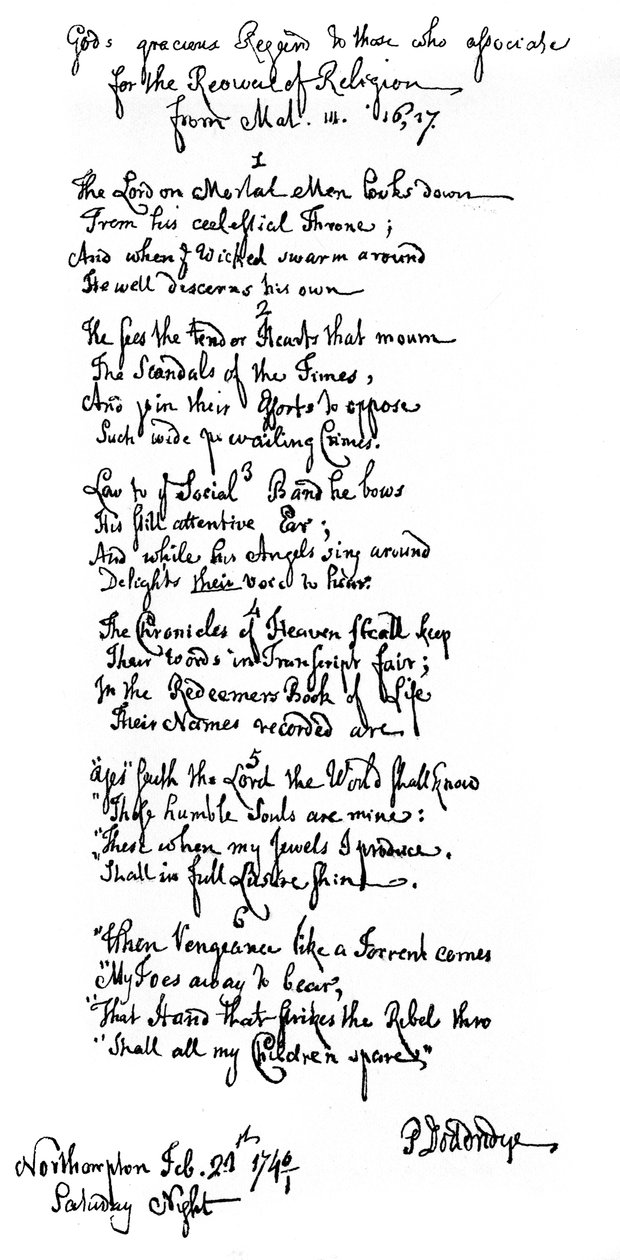 Gods gracious Regard to those who associate
for the Reowal of Religion
from Mal. III. 16, 17.
1
The Lord on Mortal Men looks down
From his ceelestial Throne;
And when ye Wicked swarm around
He well descerns his own
2
He sees the tendor Hearts that mourn
The Scandals of the Times,
And join their Efforts to oppose
Such wide prevailing Crimes.
3
Low to ye Social Band he bows
His still attentive Ear;
And while his Angels sing around
Delights their voice to hear.
4
The Chronicles of Heaven shall keep
Their Words in Transcript fair;
In the Redeemers Book of Life
Their Names recorded are.
5
"Yes" saith the Lord the World shall know
"Those humble Souls are mine:
"These when my Jewels I produce.
"Shall in full Lustre shine.
6
"When Vengeance like a Torrent comes
"My Foes away to bear,
"That Hand that strikes the Rebel thro
"Shall all my Children spare,"
P Doddridge
Northampton Feb. 21th 1740/1
Saturday Night